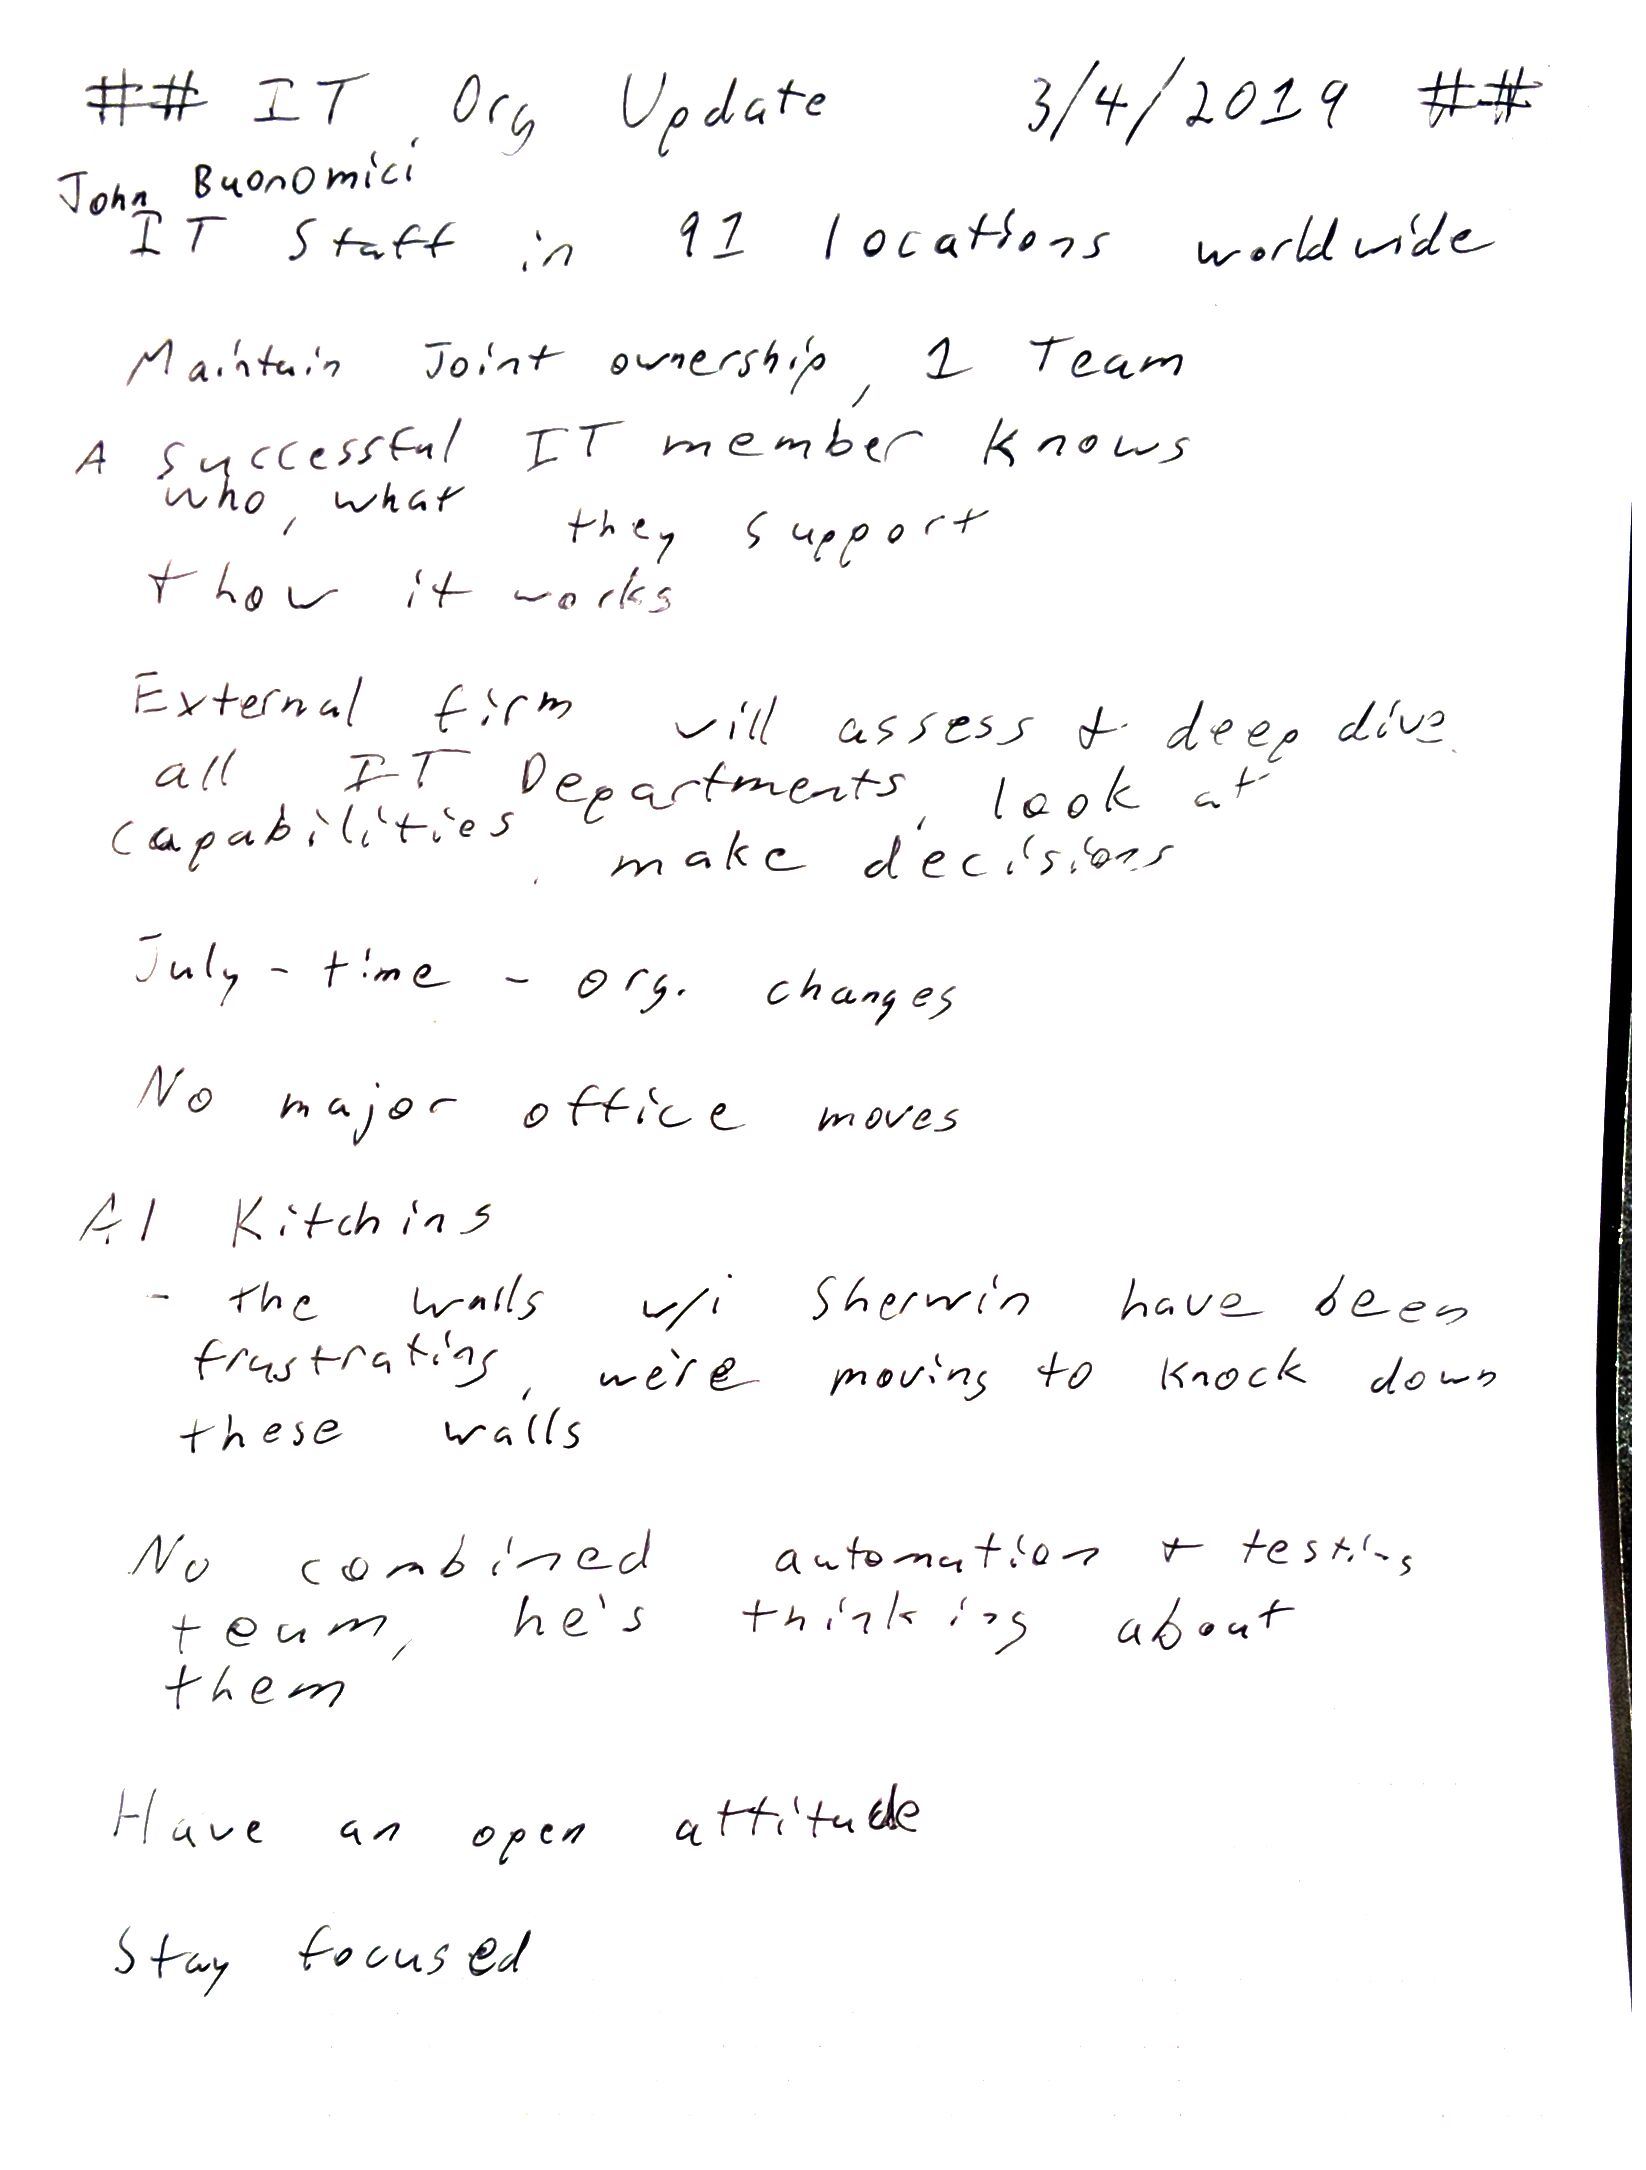 ## IT Org Update 3/4/2019 ##
John Buonomici
IT Staff in 91 locations worldwide
Maintain Joint ownership, 1 Team
A successful IT member knows
who, what they support
+ how it works
External firm will assess + deep dive
all IT Departments, look at
capabilities, make decisions
July - time - org. changes
No major office moves
Al Kitchins
- the walls w/i Sherwin have been
frustrating, we're moving to knock down
these walls
No combined automation + testing
team, he's thinking about
them
Have an open attitude
Stay focused